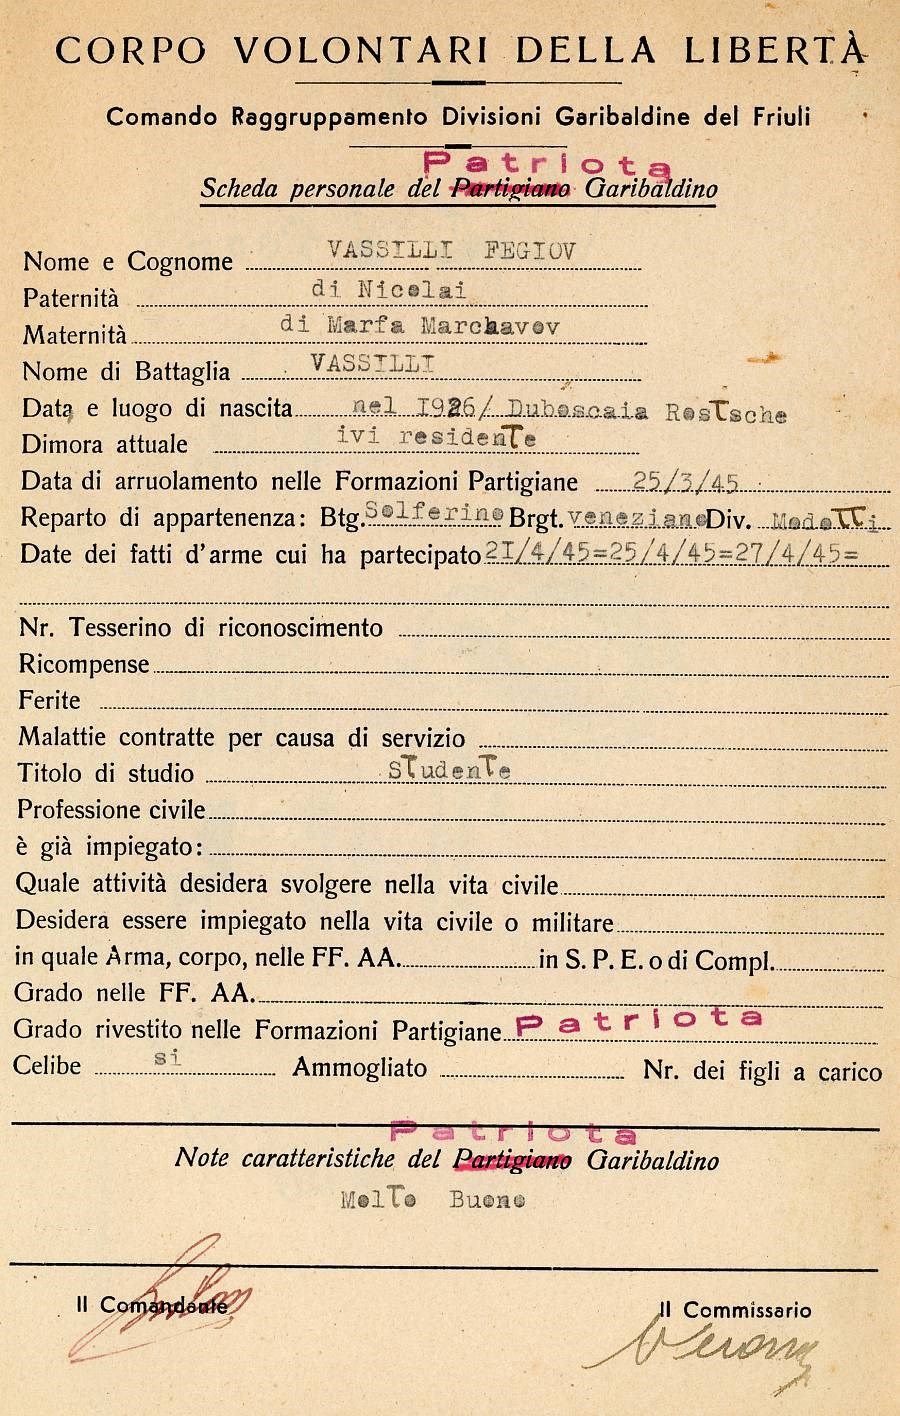 CORPO VOLONTARI DELLA LIBERTÀ
Comando Raggruppamento Divisioni Garibaldine del Friuli
Patriota
Scheda personale del Partigiano Garibaldino
Nome e Cognome VASSILLI FEGIOV
Paternità di Nicolai
Maternità di Marfa Marchavov
Nome di Battaglia VASSILLI
Data e luogo di nascita nel 1926/ Duboscaia RosTsche
Dimora attuale ivi residenTe
Data di arruolamento nelle Formazioni Partigiane 25/3/45
Reparto di appartenenza: Btg. Solferino Brgt. veneziano Div. ModoTTi
Date dei fatti d'arme cui ha partecipato 21/4/45=25/4/45=27/4/45=
Nr. Tesserino di riconoscimento
Ricompense
Ferite
Malattie contratte per causa di servizio
Titolo di studio STudenTe
Professione civile
è già impiegato:
Quale attività desidera svolgere nella vita civile
Desidera essere impiegato nella vita civile o militare
in quale Arma, corpo, nelle FF. AA. in S. P. E. o di Compl.
Grado nelle FF. AA.
Grado rivestito nelle Formazioni Partigiane Patriota
Celibe si Ammogliato Nr. dei figli a carico
Patriota
Note caratteristiche del Partigiano Garibaldino
MolTo Buono
Il Comandante Il Commissario